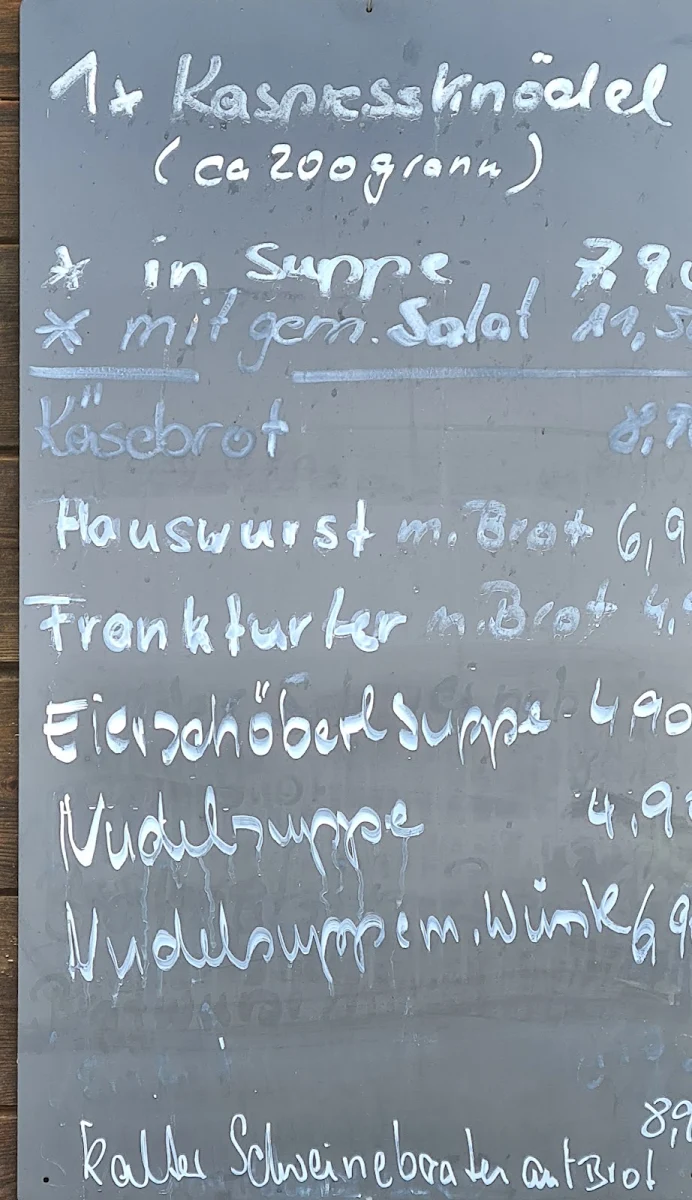 1* Kaspressknödel
(ca 200 gramm)
* in Suppe 7.90
* mit gem. Salat 11,50
Käsebrot 8,
Hauswurst m. Brot 6,9
Frankfurter m. Brot 4,
Eierschöberlsuppe 4,90
Nudelsuppe 4,9
Nudelsuppe m. Würstl 6,9
8,9
kalter Schweinebraten auf Brot